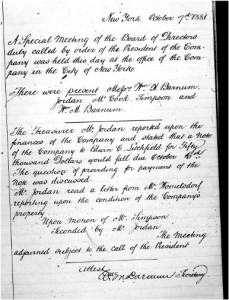 New York October 7th 1881
A Special Meeting of the Board of Directors
duly called by order of the President of the Com-
pany was held this day at the office of the Com-
pany in the City of New York
There were present Messrs Wm H Barnum
Jordan McCook Simpson and
W. M. Barnum.
The Treasurer Mr Jordan reported upon the
finances of the Company and stated that a note
of the Company to Edwin C. Litchfield for Fifty
thousand Dollars would fall due October
The question of providing for payment of the
note was discussed.
Mr Jordan read a letter from Mr
reporting upon the condition of the Company's
property
Upon motion of Mr Simpson
Seconded by Mr Jordan
The Meeting
adjourned subject to the call of the President
Attest
Barnum Secretary